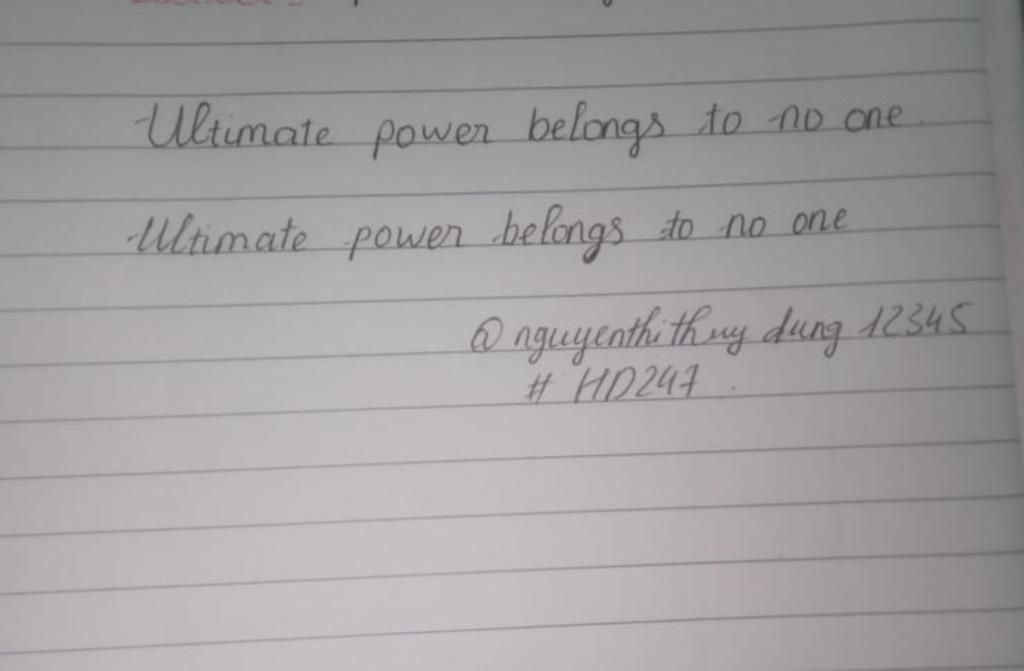 Ultimate power belongs to no one.
Ultimate power belongs to no one
@nguyenthithuy dung 12345
# HD247.